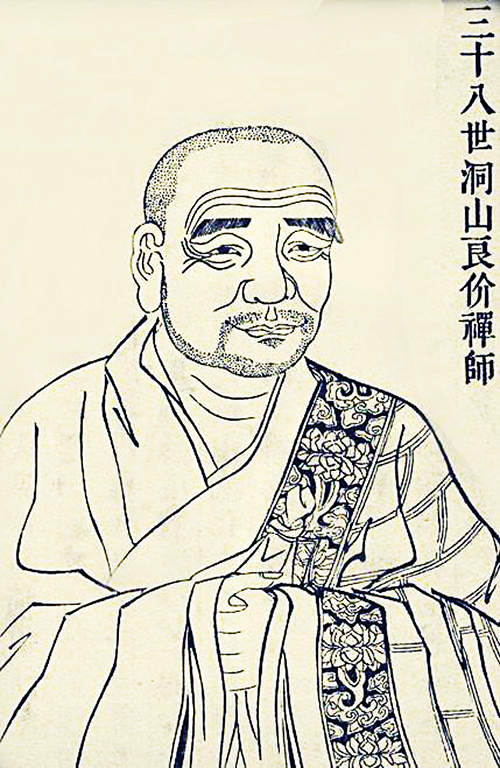 三十八世洞山良价禪師